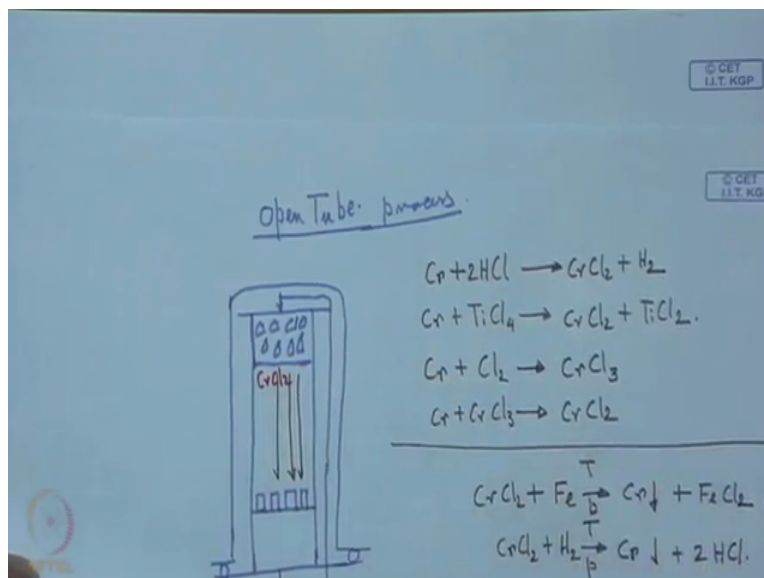 © CET
I.I.T. KGP
© CET
I.I.T. KG
Open Tube process.
Cr + 2HCl → CrCl2 + H2
Cr + TiCl4 → CrCl2 + TiCl2.
Cr + Cl2 → CrCl3
Cr + CrCl3 → CrCl2
CrCl2
T
CrCl2 + Fe → Cr↓ + FeCl2
p
T
CrCl2 + H2 → Cr↓ + 2HCl.
p